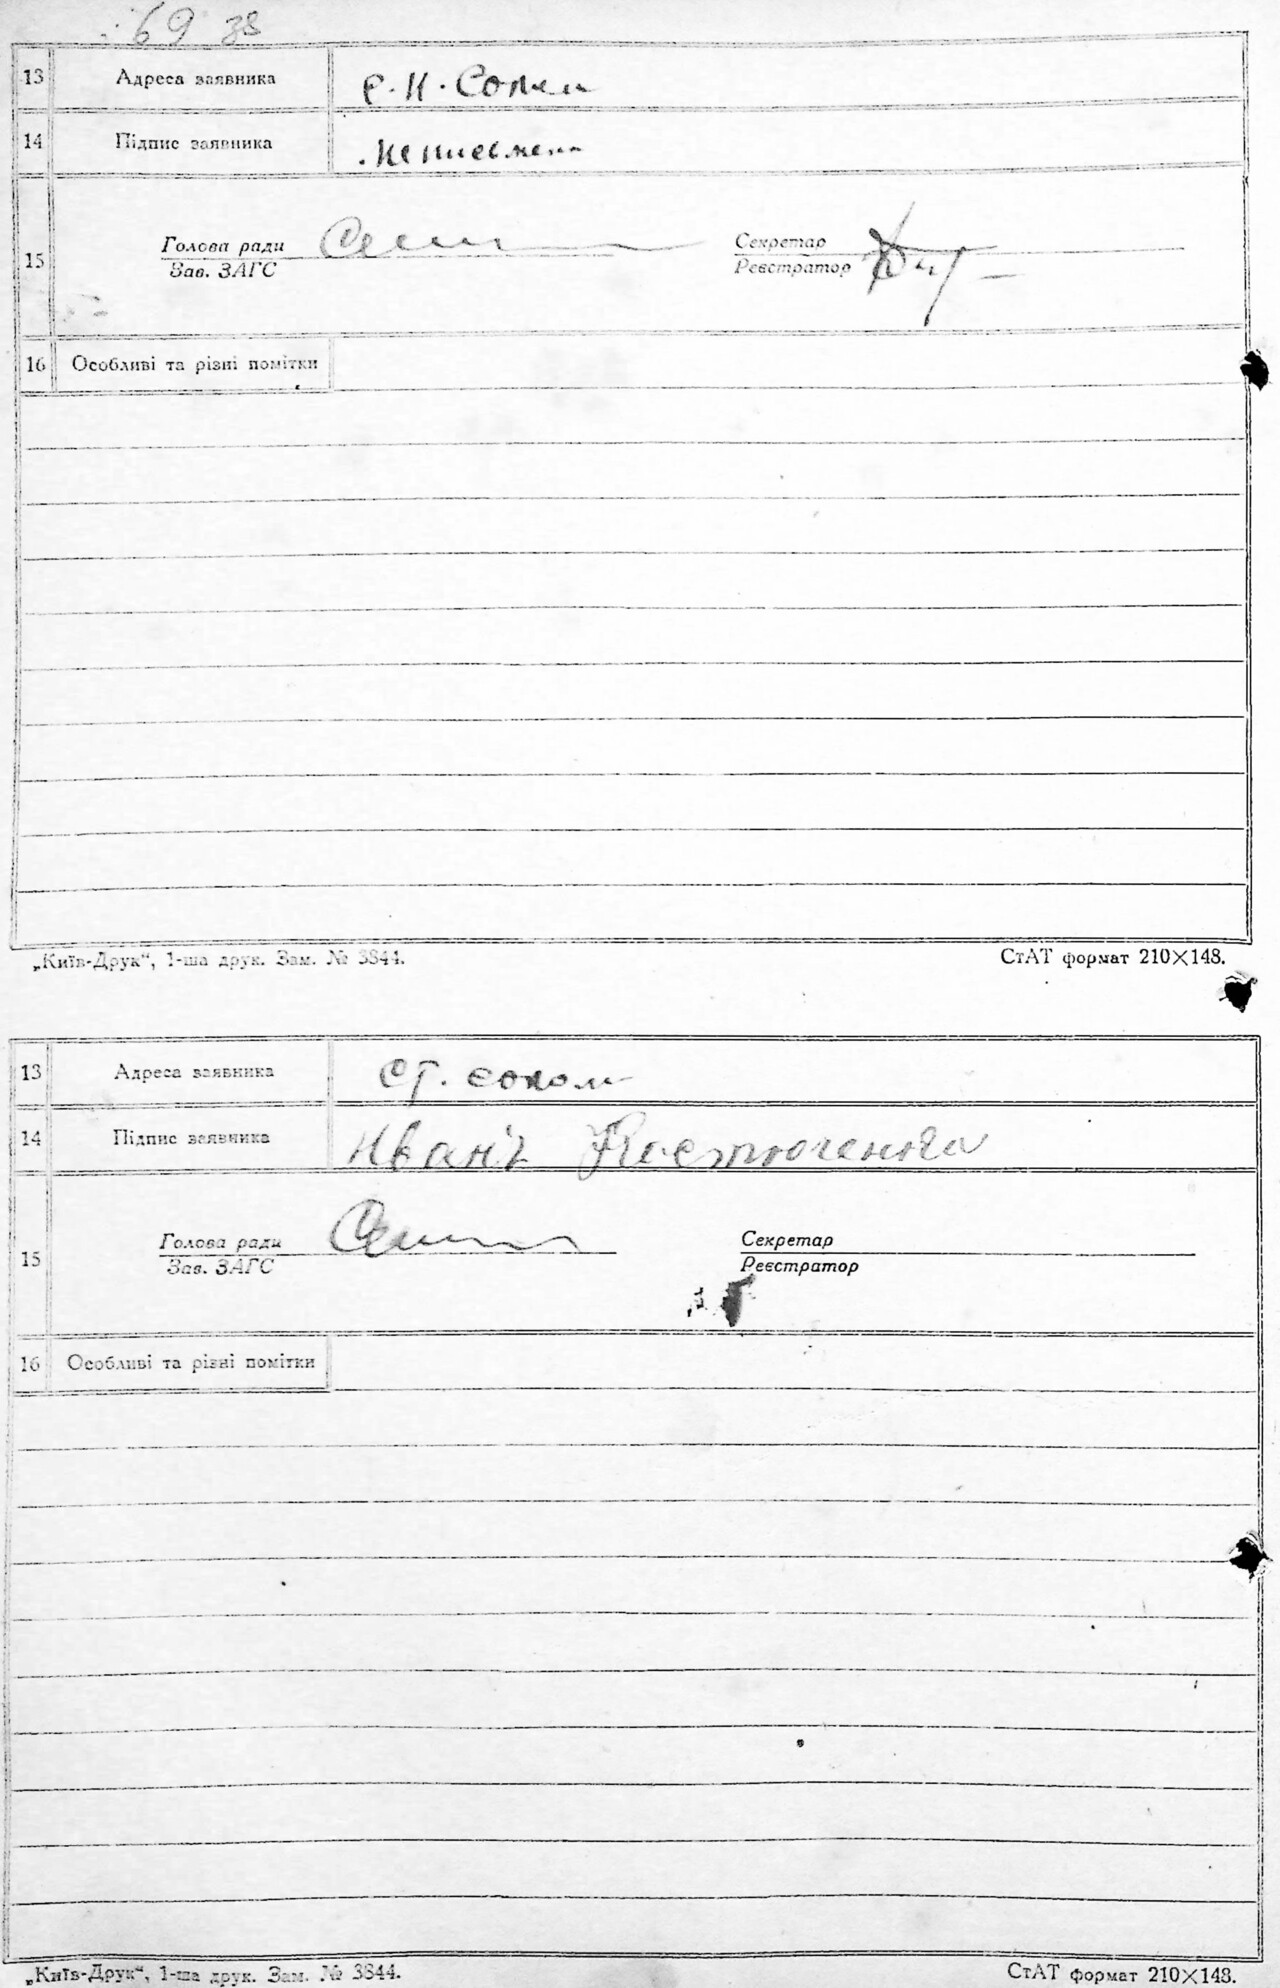 69 зв
13 Адреса заявника
14 Підпис заявника неписьмен
Голова ради Секретар
15 Зав. ЗАГС Реєстратор
16 Особливі та різні помітки
„Київ-Друк“, 1-ша друк. Зам. № 3844. СтАТ формат 210×148.
13 Адреса заявника ст.
14 Підпис заявника
Голова ради Секретар
15 Зав. ЗАГС Реєстратор
16 Особливі та різні помітки
„Київ-Друк“, 1-ша друк. Зам. № 3844. СтАТ формат 210×148.